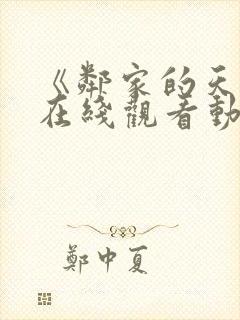 《鄰家的天
在綫觀看動
鄭中夏